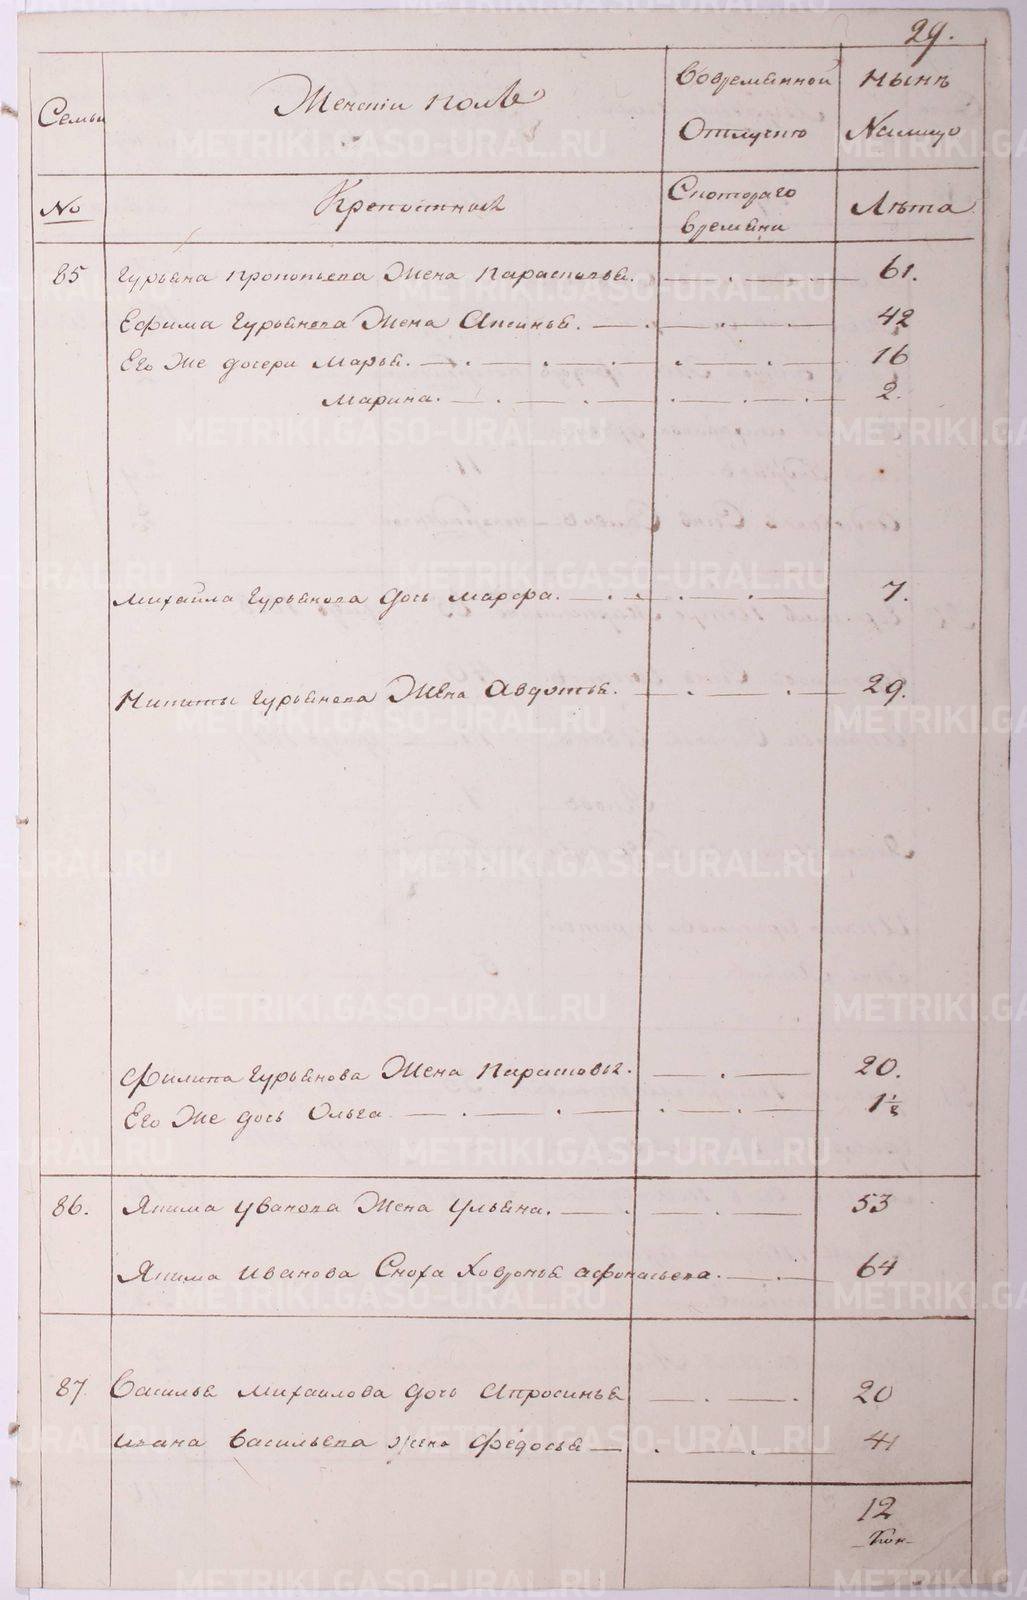 29.
Семьи
Женскій полъ
Вовремянной
Отлучке
Нынѣ
Налицо
№
Крепостныя
Скотораго
времѣни
Лѣта
85 Гурьяна прокопьева Жена парасковья. 61.
Ефима Гурьянова Жена Аксинья. 42
Его Же дочери Марья. 16
Марина. 2.
Михайла Гурьянова дочь марфа. 7.
Никиты Гурьянова Жена Авдотья. 29.
Филипа Гурьянова Жена парасковья. 20.
Его Же дочь Ольга 1 1/2
86. Якима Иванова Жена Ульяна. 53
Якима иванова Сноха Ховронья афонасьева. 64
87. Василья михаилова дочь апросинья 20
ивана васильева жена Федосья 41
12
METRIKI.GASO-URAL.RU